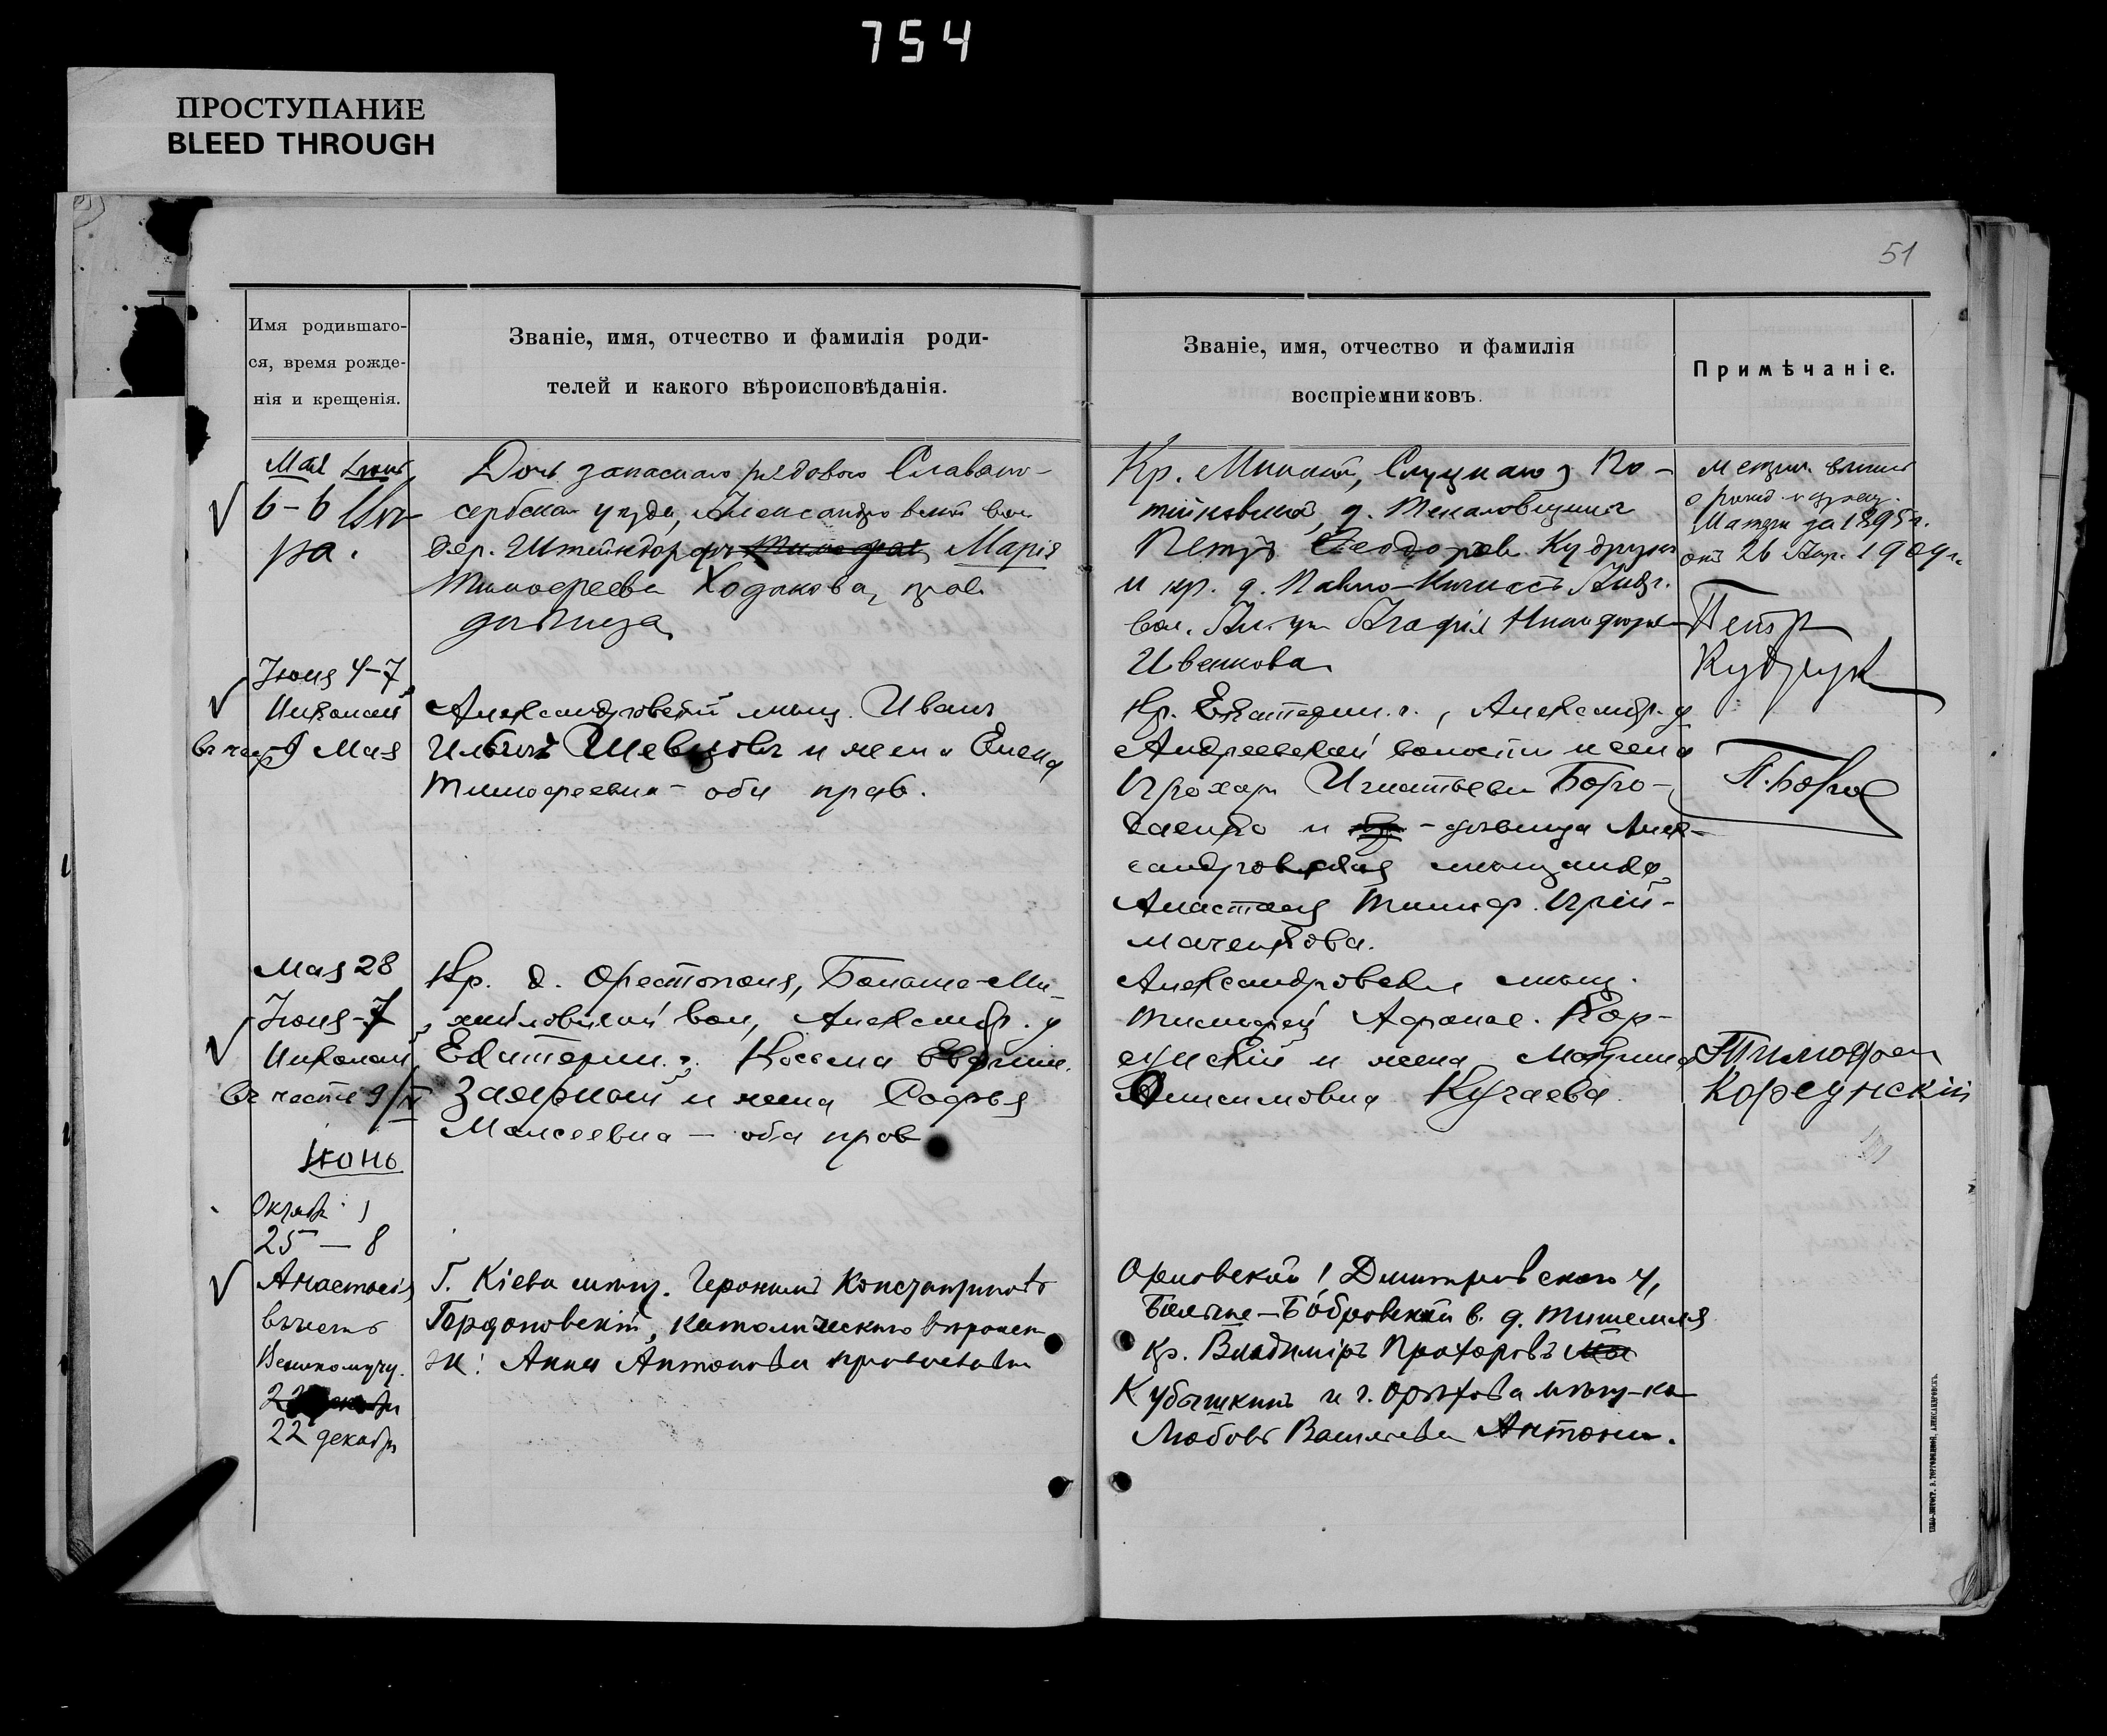 754
ПРОСТУПАНИЕ
BLEED THROUGH
51
Имя родившаго-
ся, время рожде-
нія и крещенія.
Званіе, имя, отчество и фамилія роди-
телей и какого вѣроисповѣданія.
Званіе, имя, отчество и фамилія
воспріемниковъ.
Примѣчаніе.
Мая
6-6
ра.
Дочь запаснаго рядового Славяно-
сербскаго уѣзда, Александровской вол.
дер. Штейндорфъ Марія
Тимофеева Ходакова,
дѣвица
Кр. Минской, Слуцкаго у
Петръ Феодоровъ Кудрук
и кр. д.
вол. Агафія Никифоров
Ивашкова
1895 г.
отъ 26 Апр. 1909 г.
Петр
Кудрук
Іюня 4-7
Николай
9 Мая
Александровскій мѣщ. Иванъ
Ильичъ Шевцовъ и жена Елена
Тимофеевна - оба прав.
Кр. Екатерин. г., Александр. у
Андреевской волости и села
Прохоръ Игнатьевъ Боро-
и - дѣвица Алек-
сандровская мѣщанка
Анастасія Тимоф. Прій-
маченкова.
П. Боро
Мая 28
Іюня-7
Николай
въ честь 9/V
Кр. д. Орестополя, Бѣлаго-Ми-
хайловской вол, Александр. у
Екатерин. г. Косьма
Заярный и жена Софья
Моисеевна - оба прав
Александровскій мѣщ.
Тимофей Афанас. Кор-
сунскій и жена Марина
Онисимовна Кугаева.
Тимофей
Корсунскій
Іюнь
Октяб.
25 - 8
Анастасія
въ честь
Великомуч.
22 декабр
Г. Кіева мѣщ. Иеронимъ Константиновъ
Гордоновскій, католическаго вѣроисп
ж: Анна Антонова православн
Орловской г Дмитровскаго у,
Больше-Бобровской в. д.
кр. Владиміръ Прохоровъ
Кубышкинъ и г. Орѣхова мѣщ-ка
Любовь Васильева Антони.